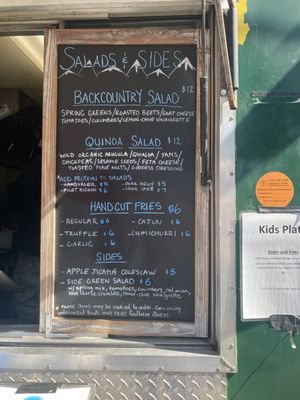 SALADS & SIDES
BACKCOUNTRY SALAD $12
SPRING GREENS/ROASTED BEETS/GOAT CHEESE
TOMATOES/CUCUMBERS/LEMON-CHIVE VINAIGRETTE
QUINOA SALAD $12
WILD ORGANIC ARUGULA/QUINOA/YAMS/
CHICKPEAS/SESAME SEEDS/FETA CHEESE/
TOASTED PINE NUTS/GODDESS DRESSING
ADD PROTEIN TO SALADS
-HAMBURGER $5
-FILET MIGNON $6
HAND CUT FRIES $6
-REGULAR $6
-TRUFFLE $6
-GARLIC $6
-CAJUN $6
-CHIMICHURRI $6
SIDES
-APPLE JICAMA COLESLAW $5
-SIDE GREEN SALAD $6
w/ spring mix, tomatoes, cucumbers, red onion,
blue cheese crumbles, lemon-chive vinaigrette
* These items may be cooked to order. Consuming
undercooked foods may cause foodborne illness
COLORADO
Kids Plat
Slider and Fries